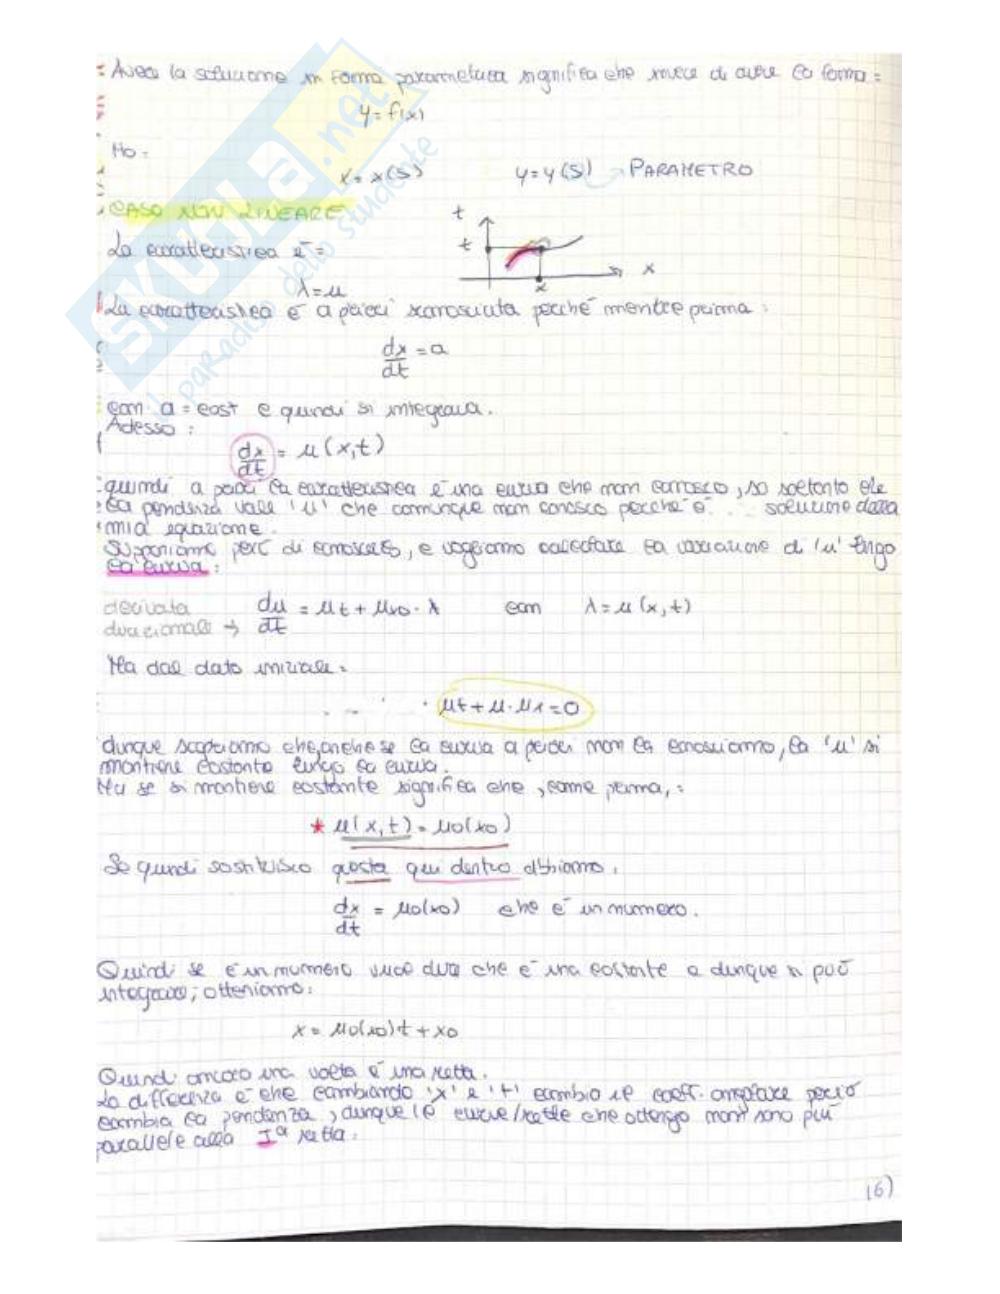 Avere la soluzione in forma parametrica significa che invece di avere la forma:
y = f(x)
Ho:
x = x(s) y = y(s) → PARAMETRO
CASO NON LINEARE
La caratteristica è:
λ = u
t
t
x
x
La caratteristica è a priori sconosciuta perché mentre prima:
dx/dt = a
con a = cost e quindi si integrava.
Adesso:
dx/dt = u(x,t)
quindi a priori la caratteristica è una curva che non conosco, so soltanto che
la pendenza vale 'u' che comunque non conosco perché è soluzione della
mia equazione.
Supponiamo però di conoscerlo, e vogliamo calcolare la variazione di 'u' lungo
la curva:
derivata
direzionale → du/dt = ut + ux · λ con λ = u(x,t)
Ma dal dato iniziale:
ut + u · ux = 0
dunque scopriamo che, anche se la curva a priori non la conosciamo, la 'u' si
mantiene costante lungo la curva.
Ma se si mantiene costante significa che, come prima,:
* u(x,t) = u0(x0)
Se quindi sostituisco questa qui dentro abbiamo:
dx/dt = u0(x0) che è un numero.
Quindi se è un numero vuol dire che è una costante e dunque si può
integrare; otteniamo:
x = u0(x0)t + x0
Quindi ancora una volta è una retta.
La differenza è che cambiando 'x' e 't' cambio il coeff. angolare perciò
cambia la pendenza, dunque le curve/rette che ottengo non sono più
parallele alla Iª retta.
16)
SKUOLA.net
il paradiso dello studente